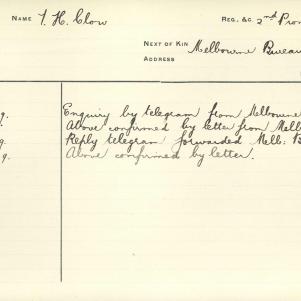 NAME T. H. Clow REG. &C. 2nd Pron
NEXT OF KIN Melbourne Bureau
ADDRESS
9. Enquiry by telegram from Melbourne
Above confirmed by letter from Melb
9. Reply telegram forwarded Melb: B
9. Above confirmed by letter.